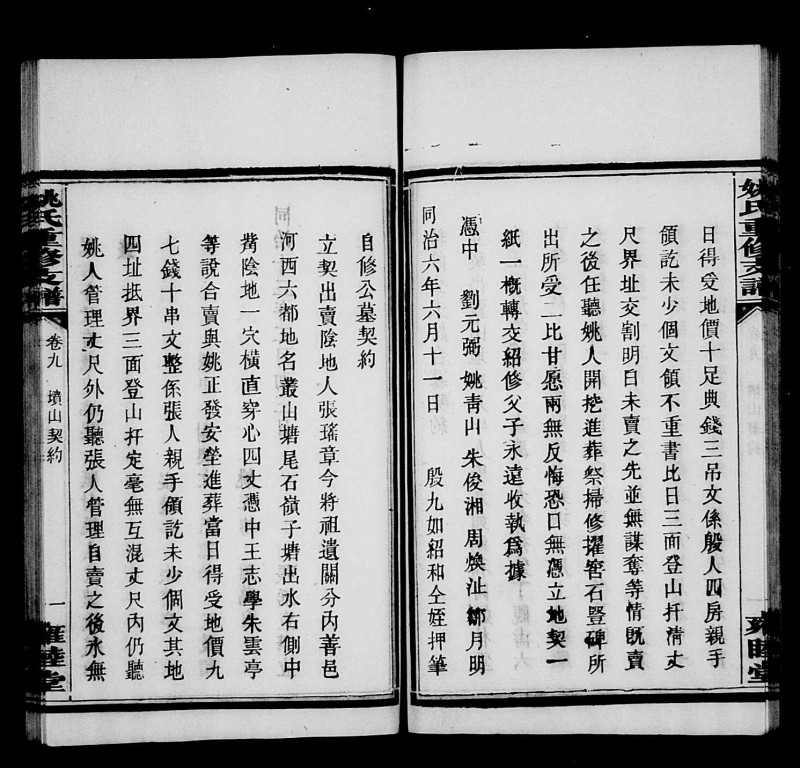 姚氏重修支譜
日得受地價十足典錢三吊文係殷人四房親手
領訖未少個文領不重書比日三面登山扦清丈
尺界址交割明白未賣之先並無謀奪等情既賣
之後任聽姚人開挖進葬祭掃修擢窨石豎碑所
出所受二比甘愿兩無反悔恐口無憑立地契一
紙一概轉交紹修父子永遠收執爲據
憑中 劉元弼 姚青山 朱俊湘 周煥沚 鄒月明
同治六年六月十一日 殷九如紹和仝姪押筆
雍睦堂
自修公墓契約
立契出賣陰地人張瑤章今將祖遺關分內善邑
河西六都地名叢山塘尾石嶺子塘出水右側中
嵴陰地一穴橫直穿心四丈憑中王志學朱雲亭
等說合賣與姚正發安塋進葬當日得受地價九
七錢十串文整係張人親手領訖未少個文其地
四址抵界三面登山扦定毫無互混丈尺內仍聽
姚人管理丈尺外仍聽張人管理自賣之後永無
姚氏重修支譜
卷九 墳山契約
一
雍睦堂